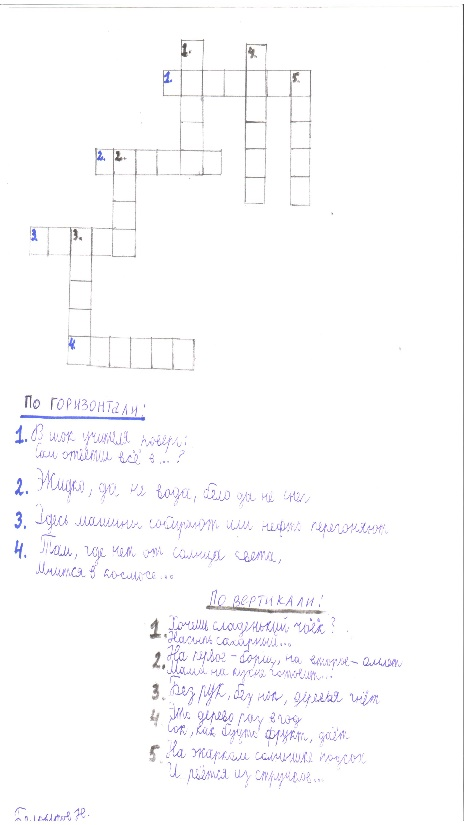 1. 4.
1. 5.
2. 2.
3 3.
4.
ПО ГОРИЗОНТАЛИ:
1. В шок учителя поверг:
Сам ответил всё о ... ?
2. Жидко, да не вода, бело да не снег
3. Здесь машины собирают или нефть перегоняют
4. Там, где нет от солнца света,
Мчится в космосе...
ПО ВЕРТИКАЛИ:
1. Хочешь сладенький чаёк?
Насыпь сахарный...
2. На первое - борщ, на второе - омлет
Мама на кухне готовит...
3. Без рук, без ног, деревья гнёт
4 Это дерево раз в год
Сок, как будто фрукт, даёт
5. На жарком солнышке подсох
И рвётся из стручков...